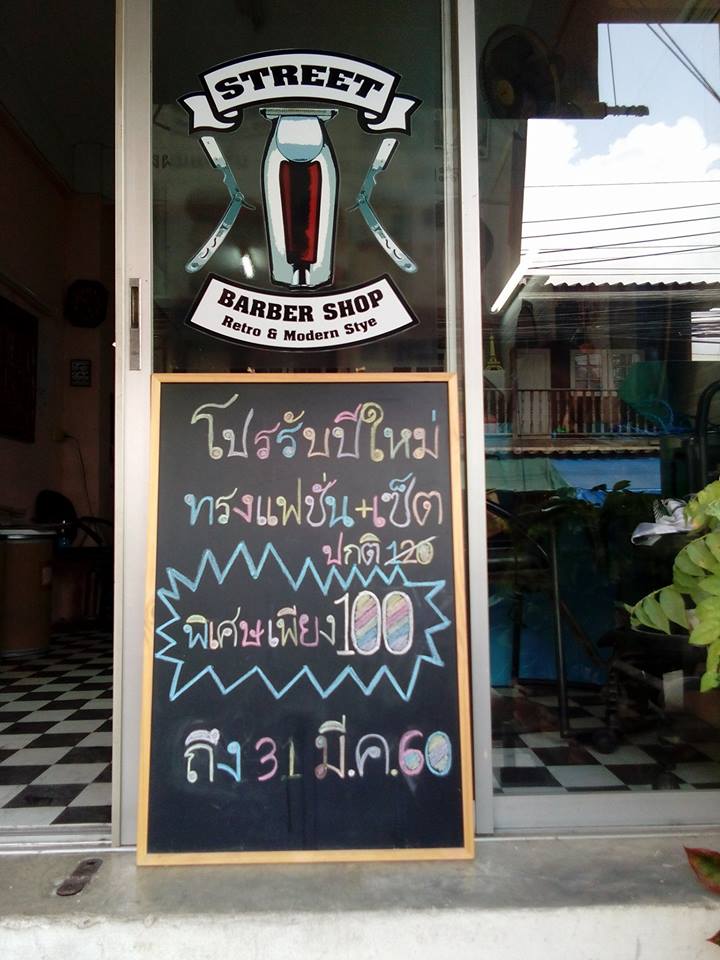 STREET
BARBER SHOP
Retro & Modern Stye
โปรรับปีใหม่
ทรงแฟชั่น+เซ็ต
ปกติ 120
พิเศษเพียง100
ถึง 31 มี.ค.60